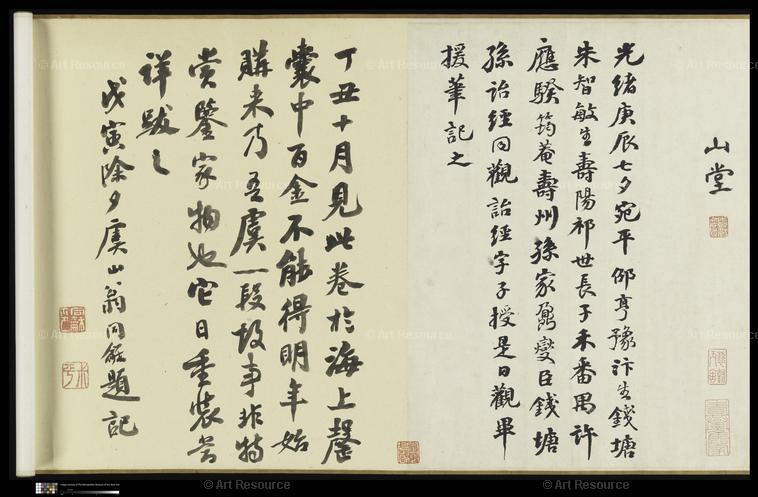 山堂
光緒庚辰七夕宛平邵亨豫汴生錢塘
朱智敏生壽陽祁世長子禾番禺許
應騤筠菴壽州孫家鼐燮臣錢塘
孫詒經同觀詒經字子授是日觀畢
援筆記之
丁丑十月見此卷於海上罄
囊中百金不能得明年始
購來乃吾虞一段故事非特
賞鑒家物也它日重裝當
詳跋之
戊寅除夕虞山翁同龢題記
© Art Resource
© Art Resource
© Art Resource
© Art Resource
© Art Resource
© Art Resource
© Art Resource
© Art Resource
© Art Resource
© Art Resource
© Art Resource